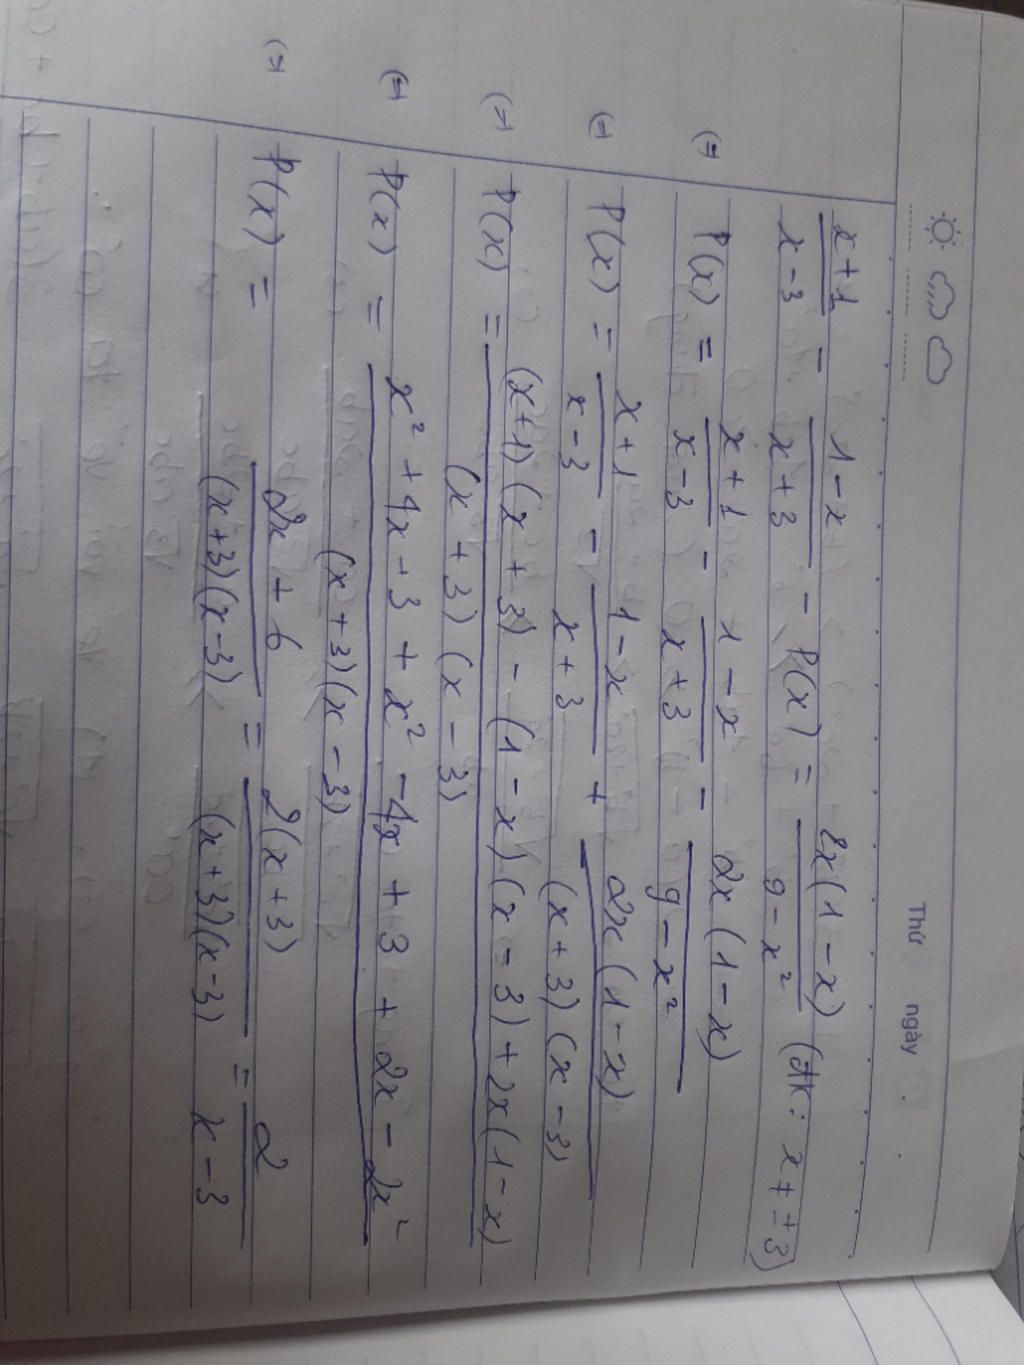 Thứ ngày
x+1/x-3 - 1-x/x+3 - P(x) = 2x(1-x)/9-x² (đk: x ≠ ±3)
(=) P(x) = x+1/x-3 - 1-x/x+3 - 2x(1-x)/9-x²
(=) P(x) = x+1/x-3 - 1-x/x+3 + 2x(1-x)/(x+3)(x-3)
(=) P(x) = (x+1)(x+3) - (1-x)(x-3) + 2x(1-x)/(x+3)(x-3)
(=) P(x) = x² + 4x + 3 + x² - 4x + 3 + 2x - 2x²/(x+3)(x-3)
(=) P(x) = 2x + 6/(x+3)(x-3) = 2(x+3)/(x+3)(x-3) = 2/x-3